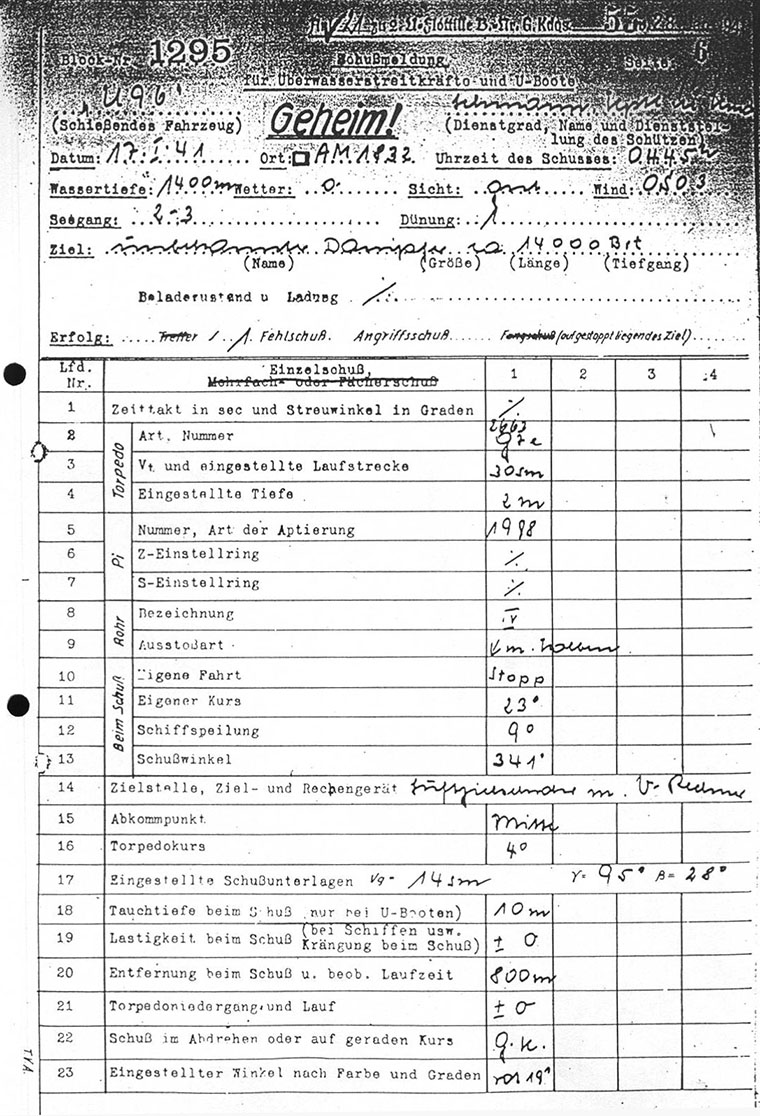 Block-Nr. 1295
Schußmeldung
Seite: 6
für Überwasserstreitkräfte und U-Boote
U 96
Geheim!
(Schießendes Fahrzeug)
(Dienstgrad, Name und Dienststel-
lung des Schützen)
Datum: 17.I.41 Ort: AM 1832 Uhrzeit des Schusses: 0445h
Wassertiefe: 1400m Wetter: 0. Sicht: Wind: 0503
Seegang: 2-3 Dünung: 1
Ziel: unbekannter Dampfer ca 14000 Brt
(Name) (Größe) (Länge) (Tiefgang)
Beladezustand u Ladung ./.
Erfolg: Treffer / 1. Fehlschuß. Angriffsschuß Fangschuß (aufgestoppt liegendes Ziel)
Lfd. Nr. Einzelschuß, 1 2 3 4
Mehrfach- oder Fächerschuß
1 Zeittakt in sec und Streuwinkel in Graden ./.
Torpedo
2 Art, Nummer 2663 G7e
3 Vt und eingestellte Laufstrecke 30sm
4 Eingestellte Tiefe 2 m
Pi
5 Nummer, Art der Aptierung 1998
6 Z-Einstellring ./.
7 S-Einstellring ./.
Rohr
8 Bezeichnung IV
9 Ausstoßart m. Kolben
Beim Schuß
10 Eigene Fahrt Stopp
11 Eigener Kurs 23°
12 Schiffspeilung 9°
13 Schußwinkel 341°
14 Zielstelle, Ziel- und Rechengerät m. V-Rechner
15 Abkommpunkt Mitte
16 Torpedokurs 4°
17 Eingestellte Schußunterlagen Vg= 14sm γ= 95° β= 28°
18 Tauchtiefe beim Schuß (nur bei U-Booten) 10m
19 Lastigkeit beim Schuß (bei Schiffen usw. Krängung beim Schuß) ± 0
20 Entfernung beim Schuß u. beob. Laufzeit 800m
21 Torpedoniedergang und Lauf ± 0
22 Schuß im Abdrehen oder auf geraden Kurs g.K.
23 Eingestellter Winkel nach Farbe und Graden rot 19°